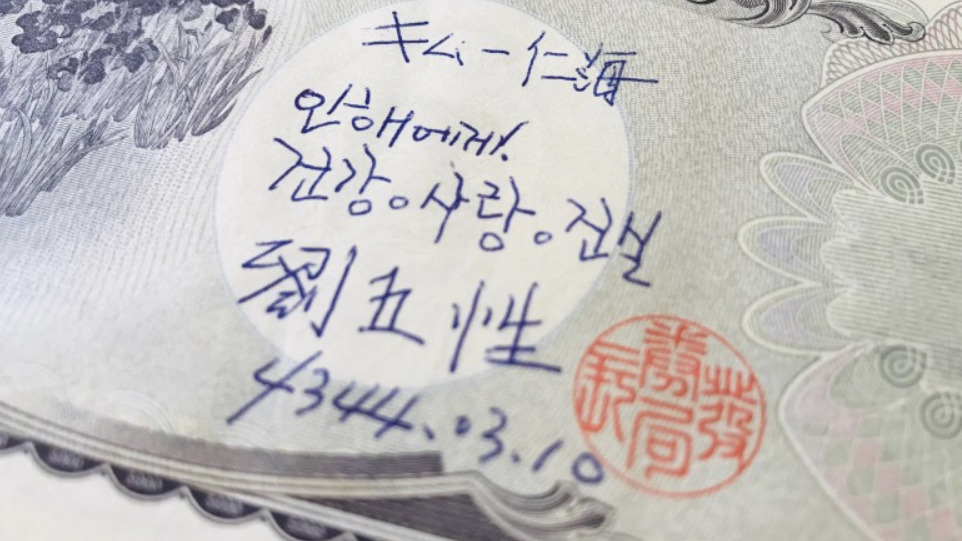 キム一仁海
인해에게!
건강。사랑。진실
劉五性
4344.03.10
發券局長